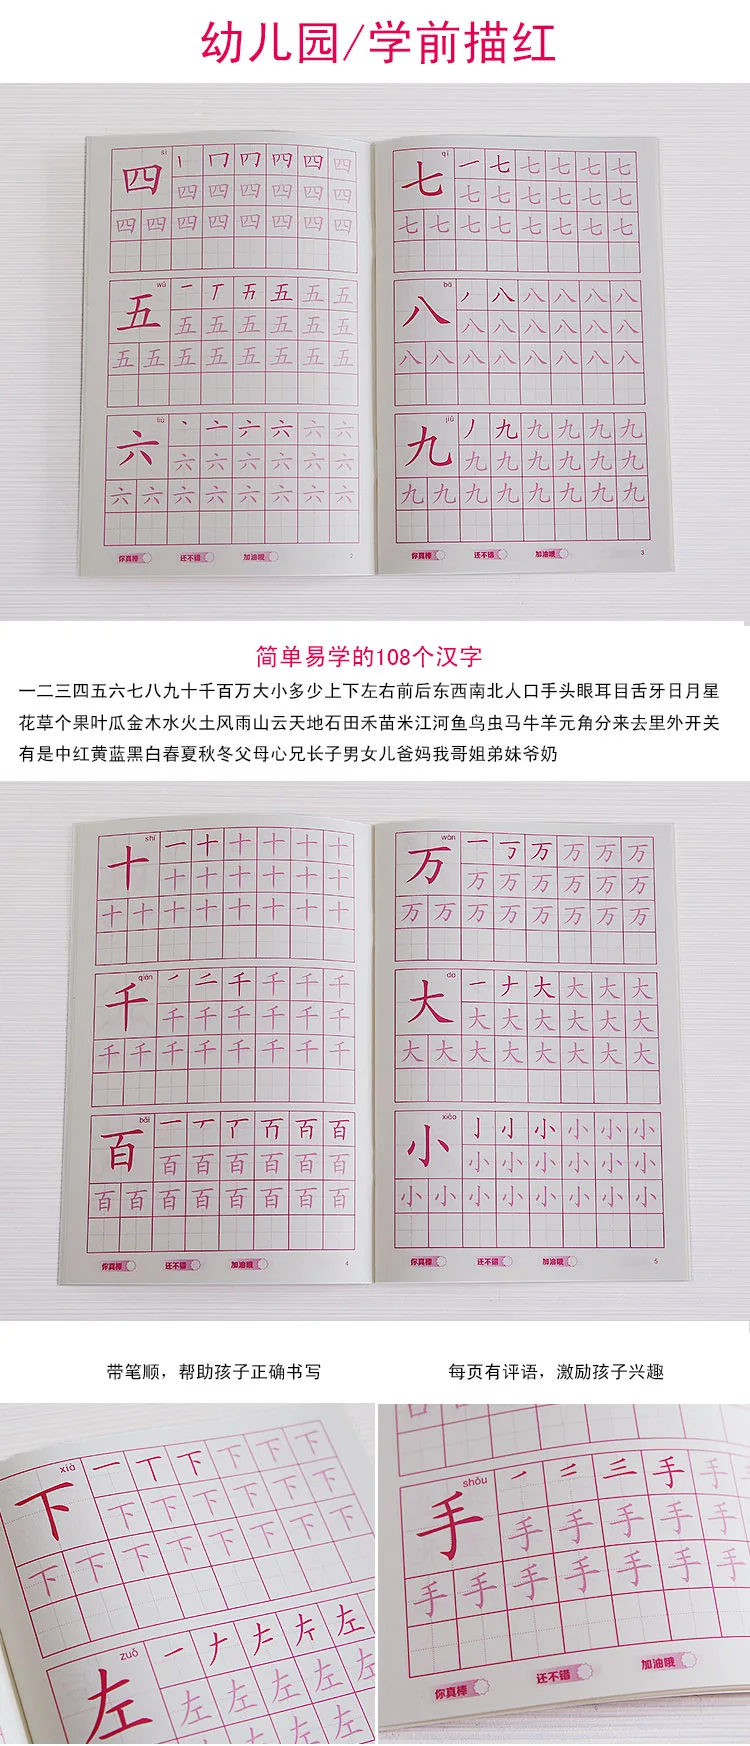 幼儿园/学前描红
sì
四 丨 冂 冂 四 四 四
四 四 四 四 四 四
四 四 四 四 四 四 四 四
wǔ
五 一 丅 五 五 五
五 五 五 五 五 五
五 五 五 五 五 五 五 五
liù
六 丶 亠 六 六 六
六 六 六 六 六 六
六 六 六 六 六 六 六 六
你真棒 还不错 加油哦 2
qī
七 一 七 七 七 七 七
七 七 七 七 七 七
七 七 七 七 七 七 七 七
bā
八 丿 八 八 八 八 八
八 八 八 八 八 八
八 八 八 八 八 八 八 八
jiǔ
九 丿 九 九 九 九 九
九 九 九 九 九 九
九 九 九 九 九 九 九 九
你真棒 还不错 加油哦 3
简单易学的108个汉字
一二三四五六七八九十千百万大小多少上下左右前后东西南北人口手头眼耳目舌牙日月星
花草个果叶瓜金木水火土风雨山云天地石田禾苗米江河鱼鸟虫马牛羊元角分来去里外开关
有是中红黄蓝黑白春夏秋冬父母心兄长子男女儿爸妈我哥姐弟妹爷奶
shí
十 一 十 十 十 十 十
十 十 十 十 十 十
十 十 十 十 十 十 十 十
qiān
千 丿 二 千 千 千 千
千 千 千 千 千 千
千 千 千 千 千 千 千 千
bǎi
百 一 丆 丆 百 百 百
百 百 百 百 百 百
百 百 百 百 百 百 百 百
你真棒 还不错 加油哦 4
wàn
万 一 丂 万 万 万 万
万 万 万 万 万 万
万 万 万 万 万 万 万 万
dà
大 一 ナ 大 大 大 大
大 大 大 大 大 大
大 大 大 大 大 大 大 大
xiǎo
小 亅 小 小 小 小
小 小 小 小 小 小
小 小 小 小 小 小 小 小
你真棒 还不错 加油哦 5
带笔顺，帮助孩子正确书写
每页有评语，激励孩子兴趣
xià
下 一 丅 下 下 下 下
下 下 下 下 下 下
下 下 下 下 下 下 下 下
zuǒ
左 一 ナ 左 左
左 左 左 左
shǒu
手 一 二 三 手 手
手 手 手 手 手
手 手 手 手 手 手 手
你真棒 还不错 加油哦